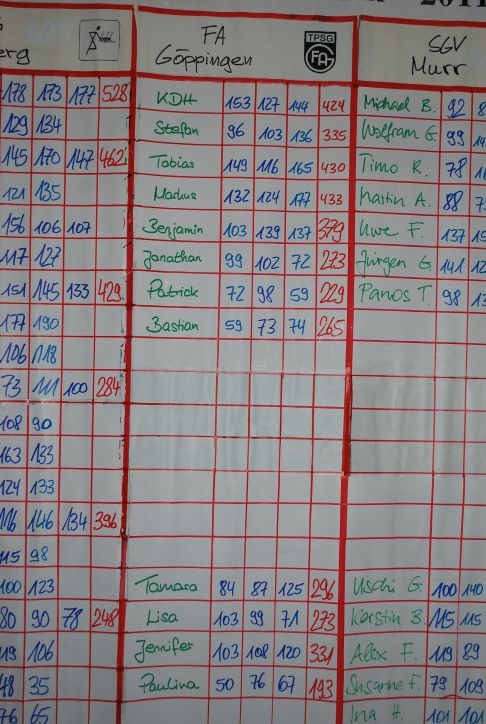 2011
FA Göppingen
TPSG
SGV Murr
erg
178 173 177 528
KDH 153 127 144 424
Michael B. 92 8
129 134
Stefan 96 103 136 335
Wolfram G. 99 14
145 170 147 462
Tobias 149 116 165 430
Timo R. 78
121 135
Markus 132 124 177 433
Martin A. 88 7
156 106 107
Benjamin 103 139 137 379
Uwe F. 137 15
117 127
Jonathan 99 102 72 273
Jürgen G. 141 12
151 145 133 429
Patrick 72 98 59 229
Panos T. 98 13
177 190
Bastian 59 73 74 265
106 118
73 111 100 284
108 90
163 133
124 133
116 146 134 396
115 98
100 123
Tamara 84 87 125 296
Uschi G. 100 140
80 90 78 248
Lisa 103 99 71 273
Kerstin B. 115 115
119 106
Jennifer 103 108 120 331
Alex F. 119 89
48 35
Paulina 50 76 67 193
Susanne F. 79 109
76 65
Ina H. 101 101